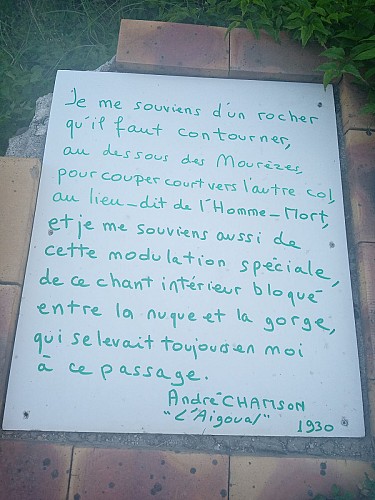 Je me souviens d'un rocher
qu'il faut contourner,
au dessous des Mourèzes,
pour couper court vers l'autre col,
au lieu-dit de l'Homme-Mort,
et je me souviens aussi de
cette modulation spéciale,
de ce chant intérieur bloqué
entre la nuque et la gorge,
qui se levait toujours en moi
à ce passage.
André CHAMSON
"L'Aigoual"
1930